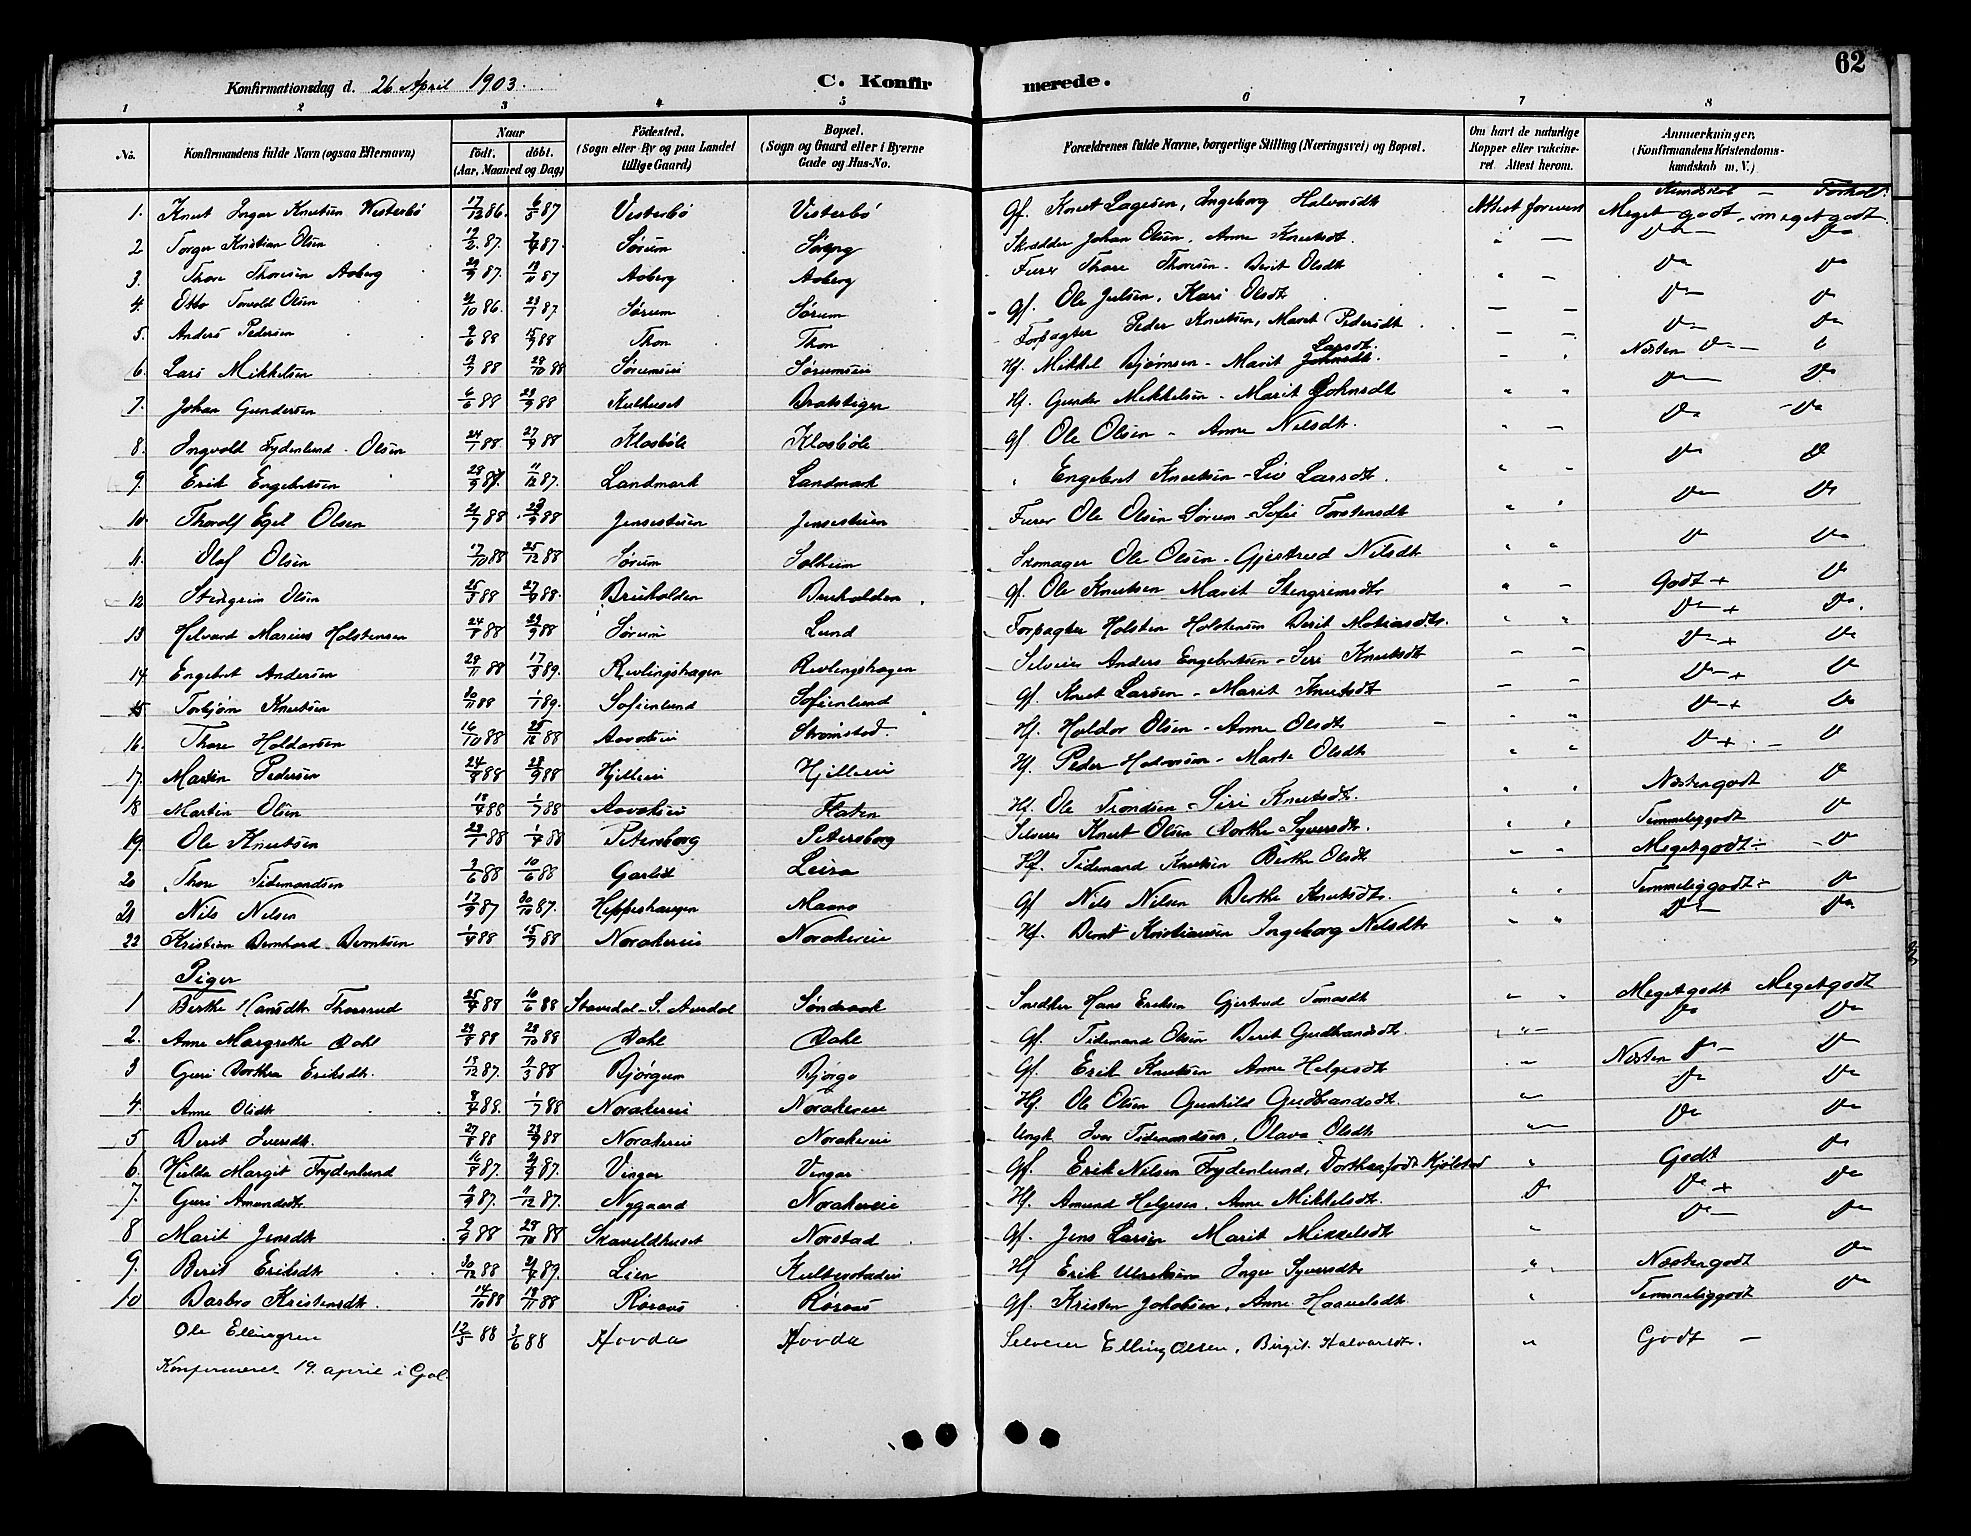 62
Konfirmationsdag d. 26 April 1903. C. Konfirmerede.
1 2 3 4 5 6 7 8
No. Konfirmandens fulde Navn (ogsaa Efternavn) Naar født, døbt. (Aar, Maaned og Dag) Fødested. (Sogn eller By og paa Landet tillige Gaard) Bopæl. (Sogn og Gaard eller i Byerne Gade og Hus-No. Forældrenes fulde Navne, borgerlige Stilling (Næringsvei) og Bopæl. Om havt de naturlige Kopper eller vakcineret. Attest herom. Anmærkninger. (Konfirmandens Kristendomskundskab m. V.)
Kundskab — Forhold
1. Knut Ingar Knutsen Vesterbø 17/12 86. 6/5 87 Vesterbø Vesterbø Gf. Knut Lagesen, Ingeborg Halvardt Attest forevist Meget godt, meget godt
2 Torger Kristian Olsen 87. 87. Sørum Sørum Skrædder Johan Olsen, Anne Knutsdt. " — Do — Do
3. Thore Thoresen Aaberg 87. 87 Aaberg Aaberg Furer Thore Thoresen. Berit Olsdt " — Do Do
4. Otto Torvald Olsen 21/10 86. 87 Sørum Sørum Gf. Ole Julsen, Kari Olsdt — — Do Do
5. Anders Pedersen 88 88 Thon Thon Forpagter Peder Knutsen, Marit Pedersdt — — Do Do
6. Lars Mikkelsen 88 29/10 88 Sørumseie Sørumseie Hf. Mikkel Bjørnsen - Marit Larsdt. Næsten Do —
7. Johan Gundersen 6/6 88 23/9 88 Kulhuset Bratstigen Hf. Gunder Mikkelsen - Marit Johnsdt " " Do Do
8. Ingvald Frydenlund Olsen 24/7 88 27/9 88 Klosbøle Klosbøle Gf Ole Olsen - Anne Nilsdt. " — Do Do
9. Erik Engebretsen 29/9 87. 11/12 87. Landmark Landmark " Engebret Knutsen - Liv Larsdt. " — Do Do
10. Thorolf Egil Olsen 21/7 88 88 Jensestuen Jensestuen Furer Ole Olsen Sørum - Sofie Torstensdt " " Do Do
11. Olaf Olsen 17/10 88 25/12 88 Sørum Solheim Skomager Ole Olsen - Gjertrud Nilsdt " " Do Do
12 Stengrim Olsen 88 27/9 88. Bruholden Bruholden Gf. Ole Knutsen Marit Stengrimsdtr " — Godt + Do
13 Helvard Marius Holstensen 24/7 88 23/9 88 Sørum Lund Forpagter Holsten Holstensen Berit Matiasdtr. " " Do + Do.
14. Engebret Andersen 29/11 88 17/3 89. Revlingshagen Revlingshagen Selveier Anders Engebretsen - Siri Knutsdt — — Do + Do
15 Torbjørn Knutsen 88 89. Sofienlund Sofienlund Gf. Knut Larsen - Marit Knutsdt — — Do + Do
16. Thore Haldorsen 16/10 88 25/12 88 Strømstad. Hf. Haldor Olsen - Anne Olsdt " " Do + Do
17. Martin Pedersen 88 88 Hjelleeie Hjelleeie Hf. Peder Halvorsen - Marte Olsdt " " Do + Do
18 Martin Olsen 88 1/7 88 Flaten Hf. Ole Trondsen - Siri Knutsdt. " " Næstengodt Do
19. Ole Knutsen 88 1/4 88 Petersborg Petersborg Selveier Knut Olsen Dorthe Syversdt. " " Temmeliggodt Do
20 Thore Tidemandsen 88 10/6 88 Garlid Leira Hf. Tidemand Knutsen Berthe Olsdt " " Megetgodt Do
21 Nils Nilsen 17/9 87 30/10 87. Heppeshaugen Maano Gf Nils Nilsen Berthe Knutsdt. " " Temmeliggodt Do
22 Kristian Bernhard Berntsen 1/4 88 15/9 88 Norakereie Norakereie Hf. Bernt Kristiansen Ingeborg Nilsdtr " " Do Do
Piger
1 Berthe Hansdt. Thoresrud 25/4 88 10/6 88 Staverdal - S. Aurdal Søndraak Snedker Hans Eriksen Gjertrud Tomasdt " " Megetgodt Megetgodt
2. Anne Margrethe Dahl 88 28/10 88 Dahl Dahl Gf. Tidemand Olsen Berit Gudbrandsdt. Do Do
3 Guri Dorthea Eriksdt. 13/12 87. 88 Bjørgum Bjørgo Gf. Erik Knutsen Anne Helgesdt " Næsten Do Do
4. Anne Olsdt 88. 1/7 88 Norakereie Norakereie Hf. Ole Olsen Gunhild Gudbrandsdt. " Do Do
5 Berit Iversdt. 27/8 88 23/9 88 Norakereie Norakereie Ungk Iver Tidemandsen, Olava Olsdt " Do Do
6. Hulda Margit Frydenlund 87. 87. Vingar Vingar Gf. Erik Nilsen Frydenlund, Dorthea født Kjølstad " Godt Do
7. Guri Amundsdtr. 87. 11/12 87. Nygaard Norakereie Hf. Amund Helgesen, Anne Mikkelsdt. Do Do + Do
8 Marit Jensdt 88 88 Skaveldhuset Norstad Gf. Jens Larsen Marit Mikkelsdt " Do — Do
9. Berit Eriksdt 30/12 88 89. Lien Kulterstadeie Hf Erik Ulriksen Inger Syversdtr " Næstengodt Do
10 Barbro Kristensdt. 14/10 88 18/11 88 Røraas Røraas Gf. Kristen Jakobsen, Anne Haavelsdt " Temmeliggodt Do
Ole Ellingsen 12/5 88 3/6 88 Hovda Hovda Selveier Elling Olsen, Birgit Halvardtr. " Godt —
Konfirmeret 19. april i Gol.